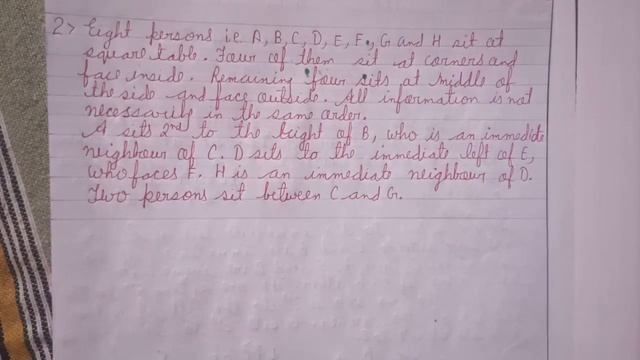 2> Eight persons i.e A, B, C, D, E, F, G and H sit at
square table. Four of them sit at corners and
face inside. Remaining four sits at middle of
the side and face outside. All information is not
necessarily in the same order.
A sits 2nd to the bight of B, who is an immediate
neighbour of C. D sits to the immediate left of E,
who faces F. H is an immediate neighbour of D.
Two persons sit between C and G.